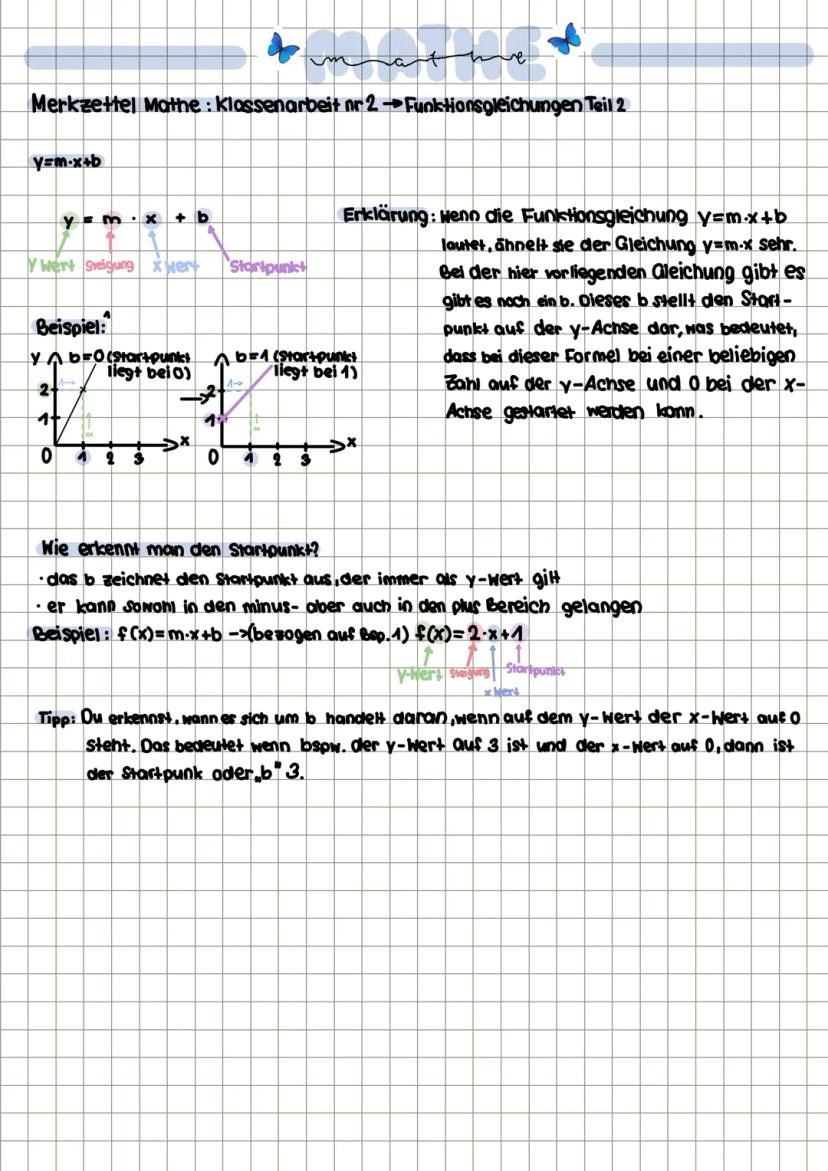 MATHE
mathe
Merkzettel Mathe: Klassenarbeit nr 2 → Funktionsgleichungen Teil 2
y=m·x+b
y = m · x + b
Y Wert Steigung X Wert Startpunkt
Erklärung: Wenn die Funktionsgleichung y=m·x+b
lautet, ähnelt sie der Gleichung y=m·x sehr.
Bei der hier vorliegenden Gleichung gibt es
gibt es noch ein b. Dieses b stellt den Start-
punkt auf der y-Achse dar, was bedeutet,
dass bei dieser Formel bei einer beliebigen
Zahl auf der y-Achse und 0 bei der x-
Achse gestartet werden kann.
Beispiel:1
y b=0 (Startpunkt
liegt bei 0)
1→
2
2→
1
x
0 1 2 3
→
b=1 (Startpunkt
liegt bei 1)
1→
2
2→
1
x
0 1 2 3
Wie erkennt man den Startpunkt?
· das b zeichnet den Startpunkt aus, der immer als y-Wert gilt
· er kann sowohl in den minus- aber auch in den plus Bereich gelangen
Beispiel: f(x)=m·x+b ->(bezogen auf Bsp.1) f(x)=2·x+1
y-Wert Steigung Startpunkt
x Wert
Tipp: Du erkennst, wann es sich um b handelt daran, wenn auf dem y-Wert der x-Wert auf 0
steht. Das bedeutet wenn bspw. der y-Wert auf 3 ist und der x-Wert auf 0, dann ist
der Startpunk oder „b" 3.